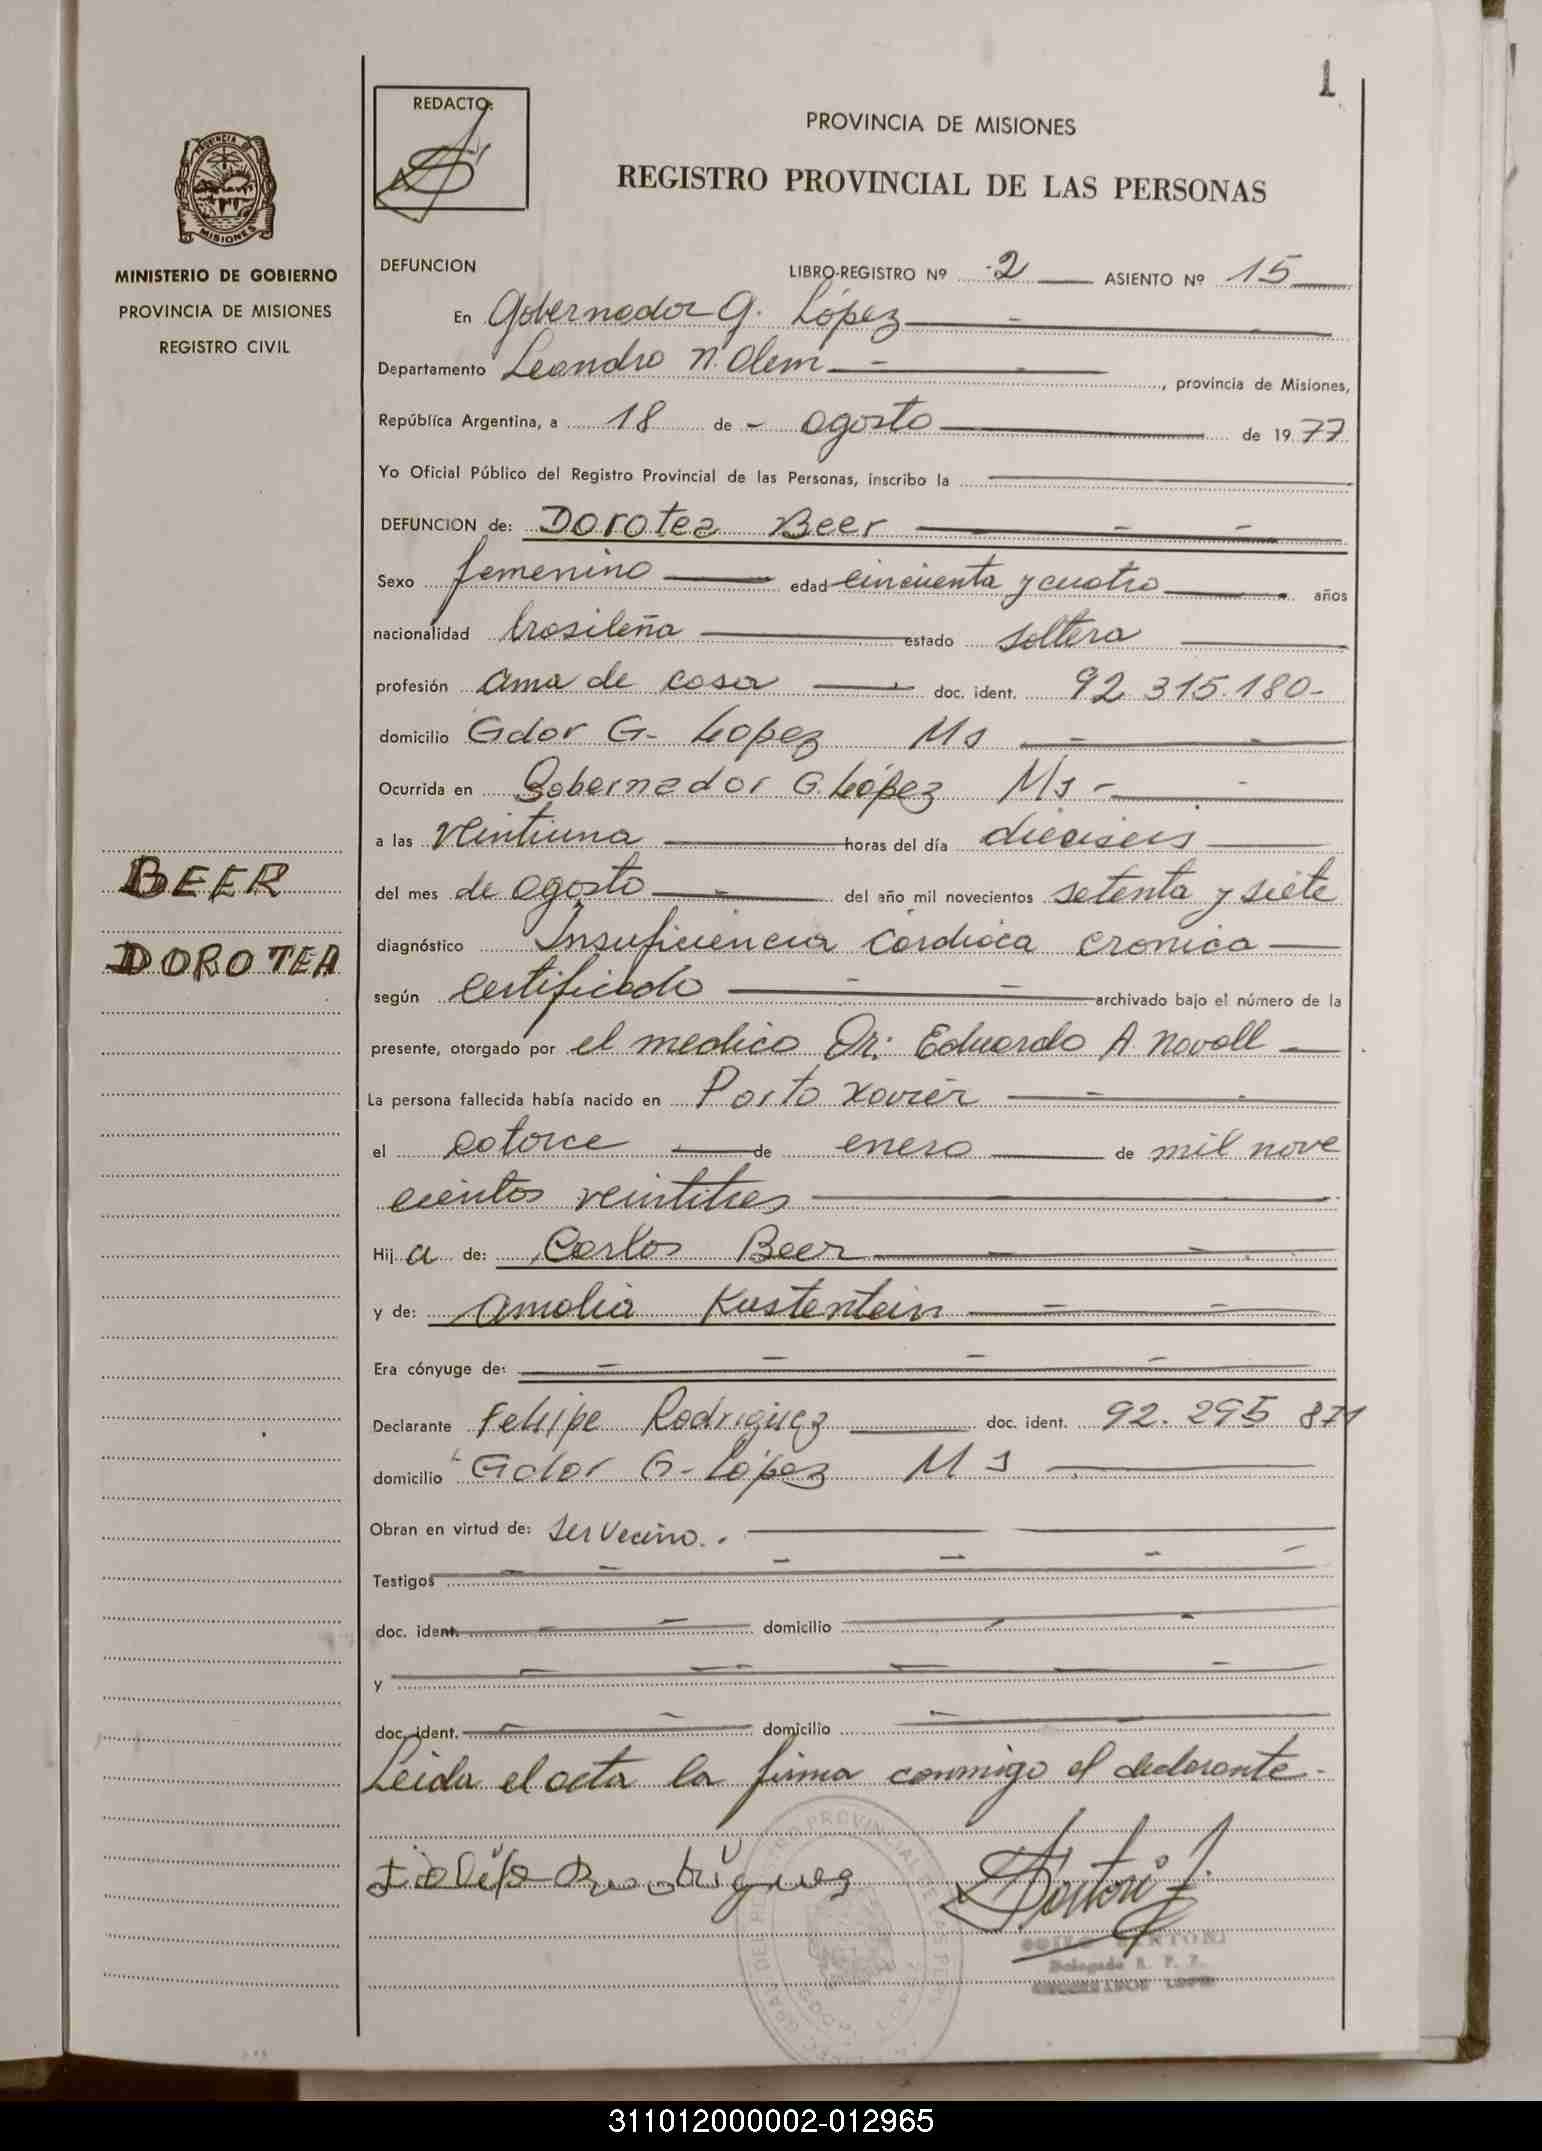 1
REDACTO:
PROVINCIA DE MISIONES
REGISTRO PROVINCIAL DE LAS PERSONAS
PROVINCIA DE
MISIONES
MINISTERIO DE GOBIERNO
PROVINCIA DE MISIONES
REGISTRO CIVIL
DEFUNCION LIBRO-REGISTRO Nº 2 ASIENTO Nº 15
En Gobernador G. López
Departamento Leandro N. Alem, provincia de Misiones,
República Argentina, a 18 de agosto de 1977
Yo Oficial Público del Registro Provincial de las Personas, inscribo la
DEFUNCION de: Dorotea Beer
Sexo femenino edad cincuenta y cuatro años
nacionalidad brasileña estado soltera
profesión ama de casa doc. ident. 92 315.180-
domicilio Gdor G- Lopez Ms
Ocurrida en Gobernador G. López Ms -
a las veintiuna horas del día dieciseis
BEER
del mes de agosto del año mil novecientos setenta y siete
DOROTEA
diagnóstico Insuficiencia cardiaca cronica
según certificado archivado bajo el número de la
presente, otorgado por el medico Dr: Eduardo A Novoll
La persona fallecida había nacido en Porto Xavier
el catorce de enero de mil nove
cientos veintitres
Hija de: Carlos Beer
y de: Amalia Kustentein
Era cónyuge de:
Declarante Felipe Rodriguez doc. ident. 92. 295 871
domicilio Gdor G- López Ms
Obran en virtud de: ser vecino.
Testigos
doc. ident. domicilio
y
doc. ident. domicilio
Leida el acta la firma conmigo el declarante-
Rodrigues
Sartori
SARTORI
Delegado R. P. P.
GOBERNADOR LOPEZ
311012000002-012965